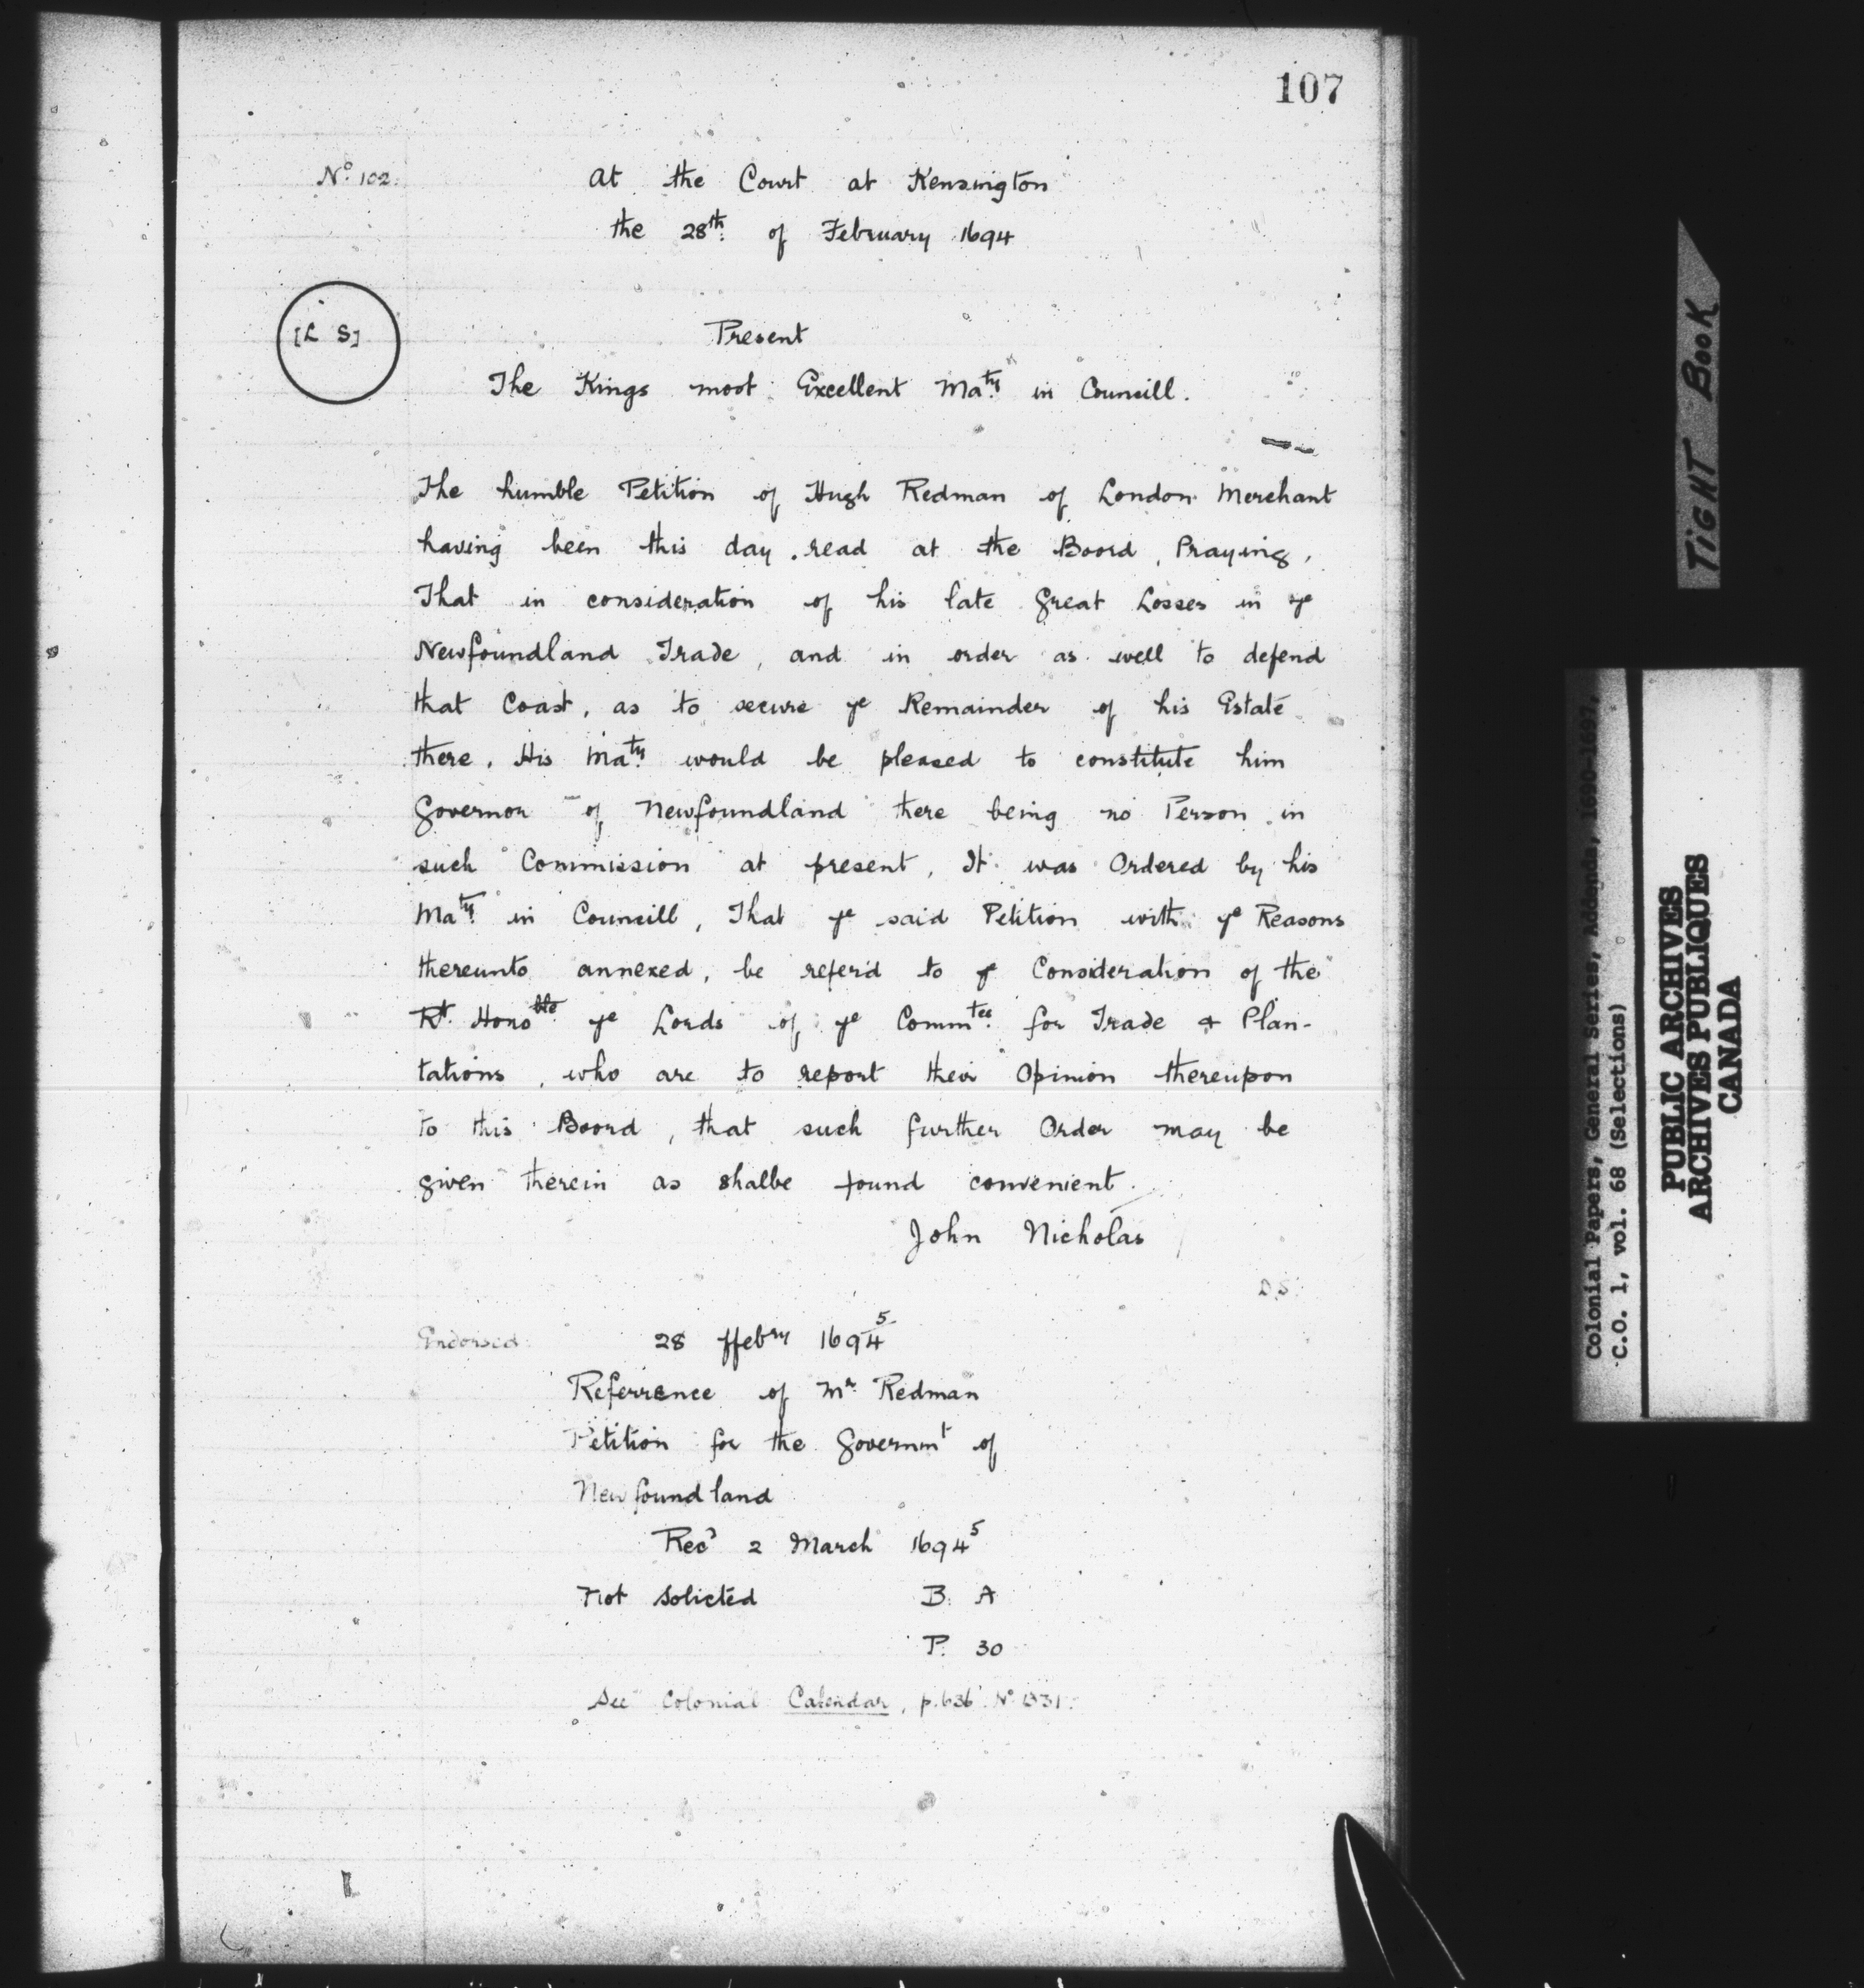 107
Nº 102.
At the Court at Kensington
the 28th. of February 1694
[L S]
Present
The Kings most Excellent Maty. in Councill.
The humble Petition of Hugh Redman of London Merchant
having been this day read at the Boord, Praying,
That in consideration of his late Great Losses in ye
Newfoundland Trade, and in order as well to defend
that Coast, as to secure ye Remainder of his Estate
there, His Maty. would be pleased to constitute him
Governor of Newfoundland there being no Person in
such Commission at present, It was Ordered by his
Maty. in Councill, That ye said Petition with ye Reasons
thereunto annexed, be referd to ye Consideration of the
Rt. Honoble. ye Lords of ye Commtee. for Trade & Plan-
tations, who are to report their Opinion thereupon
to this Boord, that such further Order may be
given therein as shalbe found convenient.
John Nicholas
D.S.
Endorsed
28 ffebry 1694/5
Referrence of Mr. Redman
Petition for the Governmt of
Newfoundland
Recd 2 March 1694/5
Not Solicted B. A
P. 30
See Colonial Calendar, p. 636. Nº
TIGHT BOOK
Colonial Papers, General Series, Addenda, 1690-1697,
C.O. 1, vol. 68 (Selections)
PUBLIC ARCHIVES
ARCHIVES PUBLIQUES
CANADA